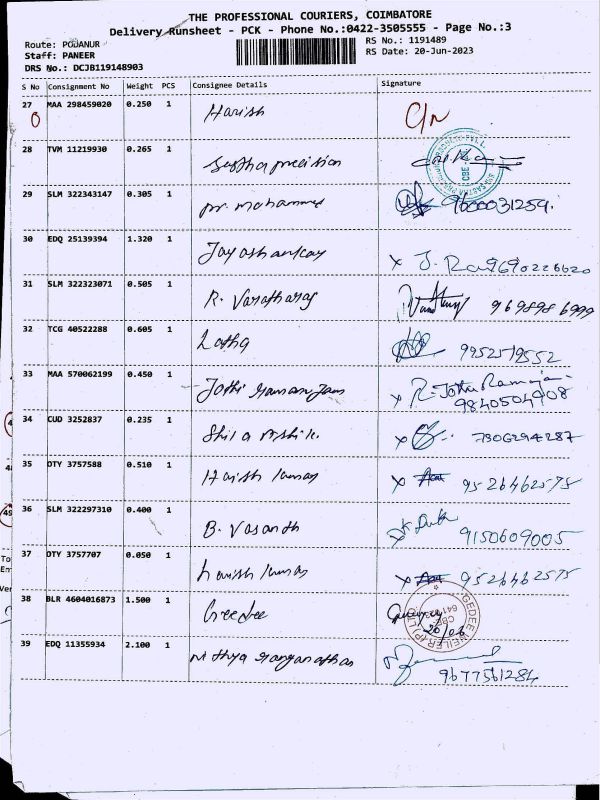 THE PROFESSIONAL COURIERS, COIMBATORE
Delivery Runsheet - PCK - Phone No.:0422-3505555 - Page No.:3
Route: PODANUR
RS No.: 1191489
Staff: PANEER
RS Date: 20-Jun-2023
DRS No.: DCJB119148903
S No Consignment No Weight PCS Consignee Details Signature
27 MAA 298459020 0.250 1 Harish
28 TVM 11219930 0.265 1 precision
29 SLM 322343147 0.305 1 mohammed 9600031259
30 EDQ 25139394 1.320 1 Jayashankar x J. 9690226620
31 SLM 322323071 0.505 1 R. Varatharaj 969898 6999
32 TCG 40522288 0.605 1 Latha 9952519552
33 MAA 570062199 0.450 1 Jothi x R. 9840504908
34 CUD 3252837 0.235 1 x 7306294287
35 DTY 3757588 0.510 1 Harish kumar x 9526462575
36 SLM 322297310 0.400 1 B. Vasanth 9150609005
37 DTY 3757707 0.050 1 harish kumar x 9526462575
38 BLR 4604016873 1.500 1 Greedee 20/06
39 EDQ 11355934 2.100 1 Nithya 9677561284